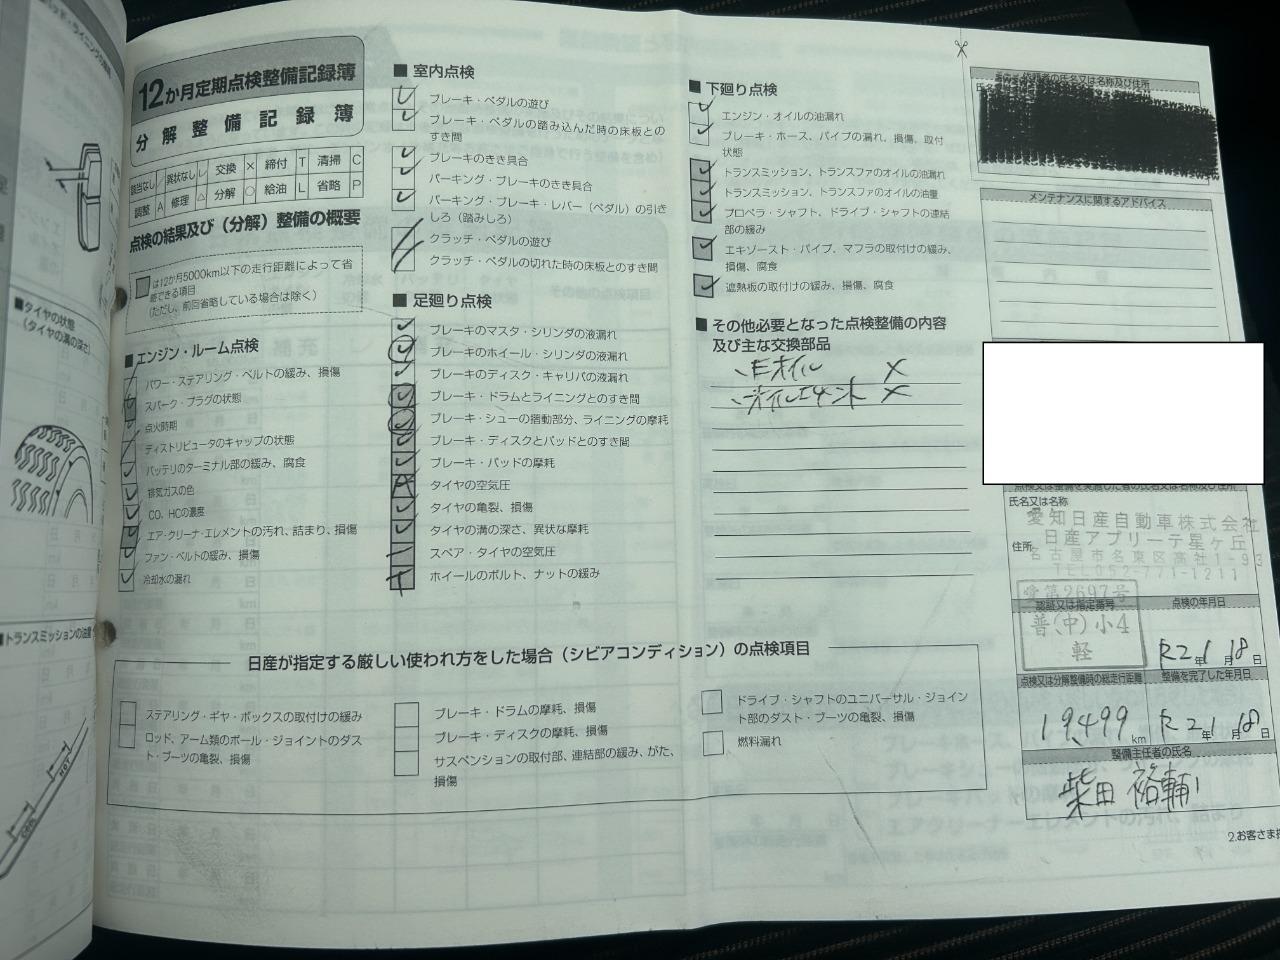 12か月定期点検整備記録簿
分解整備記録簿
該当なし / 異状なし レ 交換 × 締付 T 清掃 C
調整 A 修理 △ 分解 ○ 給油 L 省略 P
点検の結果及び（分解）整備の概要
は12か月5000km以下の走行距離によって省
略できる項目
（ただし、前回省略している場合は除く）
■エンジン・ルーム点検
パワー・ステアリング・ベルトの緩み、損傷
スパーク・プラグの状態
点火時期
ディストリビュータのキャップの状態
バッテリのターミナル部の緩み、腐食
排気ガスの色
CO、HCの濃度
エア・クリーナ・エレメントの汚れ、詰まり、損傷
ファン・ベルトの緩み、損傷
冷却水の漏れ
■室内点検
ブレーキ・ペダルの遊び
ブレーキ・ペダルの踏み込んだ時の床板との
すき間
ブレーキのきき具合
パーキング・ブレーキのきき具合
パーキング・ブレーキ・レバー（ペダル）の引き
しろ（踏みしろ）
クラッチ・ペダルの遊び
クラッチ・ペダルの切れた時の床板とのすき間
■足廻り点検
ブレーキのマスタ・シリンダの液漏れ
ブレーキのホイール・シリンダの液漏れ
ブレーキのディスク・キャリパの液漏れ
ブレーキ・ドラムとライニングとのすき間
ブレーキ・シューの摺動部分、ライニングの摩耗
ブレーキ・ディスクとパッドとのすき間
ブレーキ・パッドの摩耗
タイヤの空気圧
タイヤの亀裂、損傷
タイヤの溝の深さ、異状な摩耗
スペア・タイヤの空気圧
ホイールのボルト、ナットの緩み
■下廻り点検
エンジン・オイルの油漏れ
ブレーキ・ホース、パイプの漏れ、損傷、取付
状態
トランスミッション、トランスファのオイルの油漏れ
トランスミッション、トランスファのオイルの油量
プロペラ・シャフト、ドライブ・シャフトの連結
部の緩み
エキゾースト・パイプ、マフラの取付けの緩み、
損傷、腐食
遮熱板の取付けの緩み、損傷、腐食
■その他必要となった点検整備の内容
及び主な交換部品
、Eオイル ×
、オイルエレメント ×
メンテナンスに関するアドバイス
点検又は整備を実施した者の氏名又は名称及び住所
氏名又は名称
愛知日産自動車株式会社
住所 日産アプリーテ星ヶ丘
名古屋市名東区高社1-93
TEL052-771-1211
愛第2697号
認証又は指定番号
普(中)小4
軽
点検の年月日
R2年1月18日
点検又は分解整備時の総走行距離
19,499km
整備を完了した年月日
R2年1月18日
整備主任者の氏名
柴田 裕輔
日産が指定する厳しい使われ方をした場合（シビアコンディション）の点検項目
ステアリング・ギヤ・ボックスの取付けの緩み
ロッド、アーム類のボール・ジョイントのダス
ト・ブーツの亀裂、損傷
ブレーキ・ドラムの摩耗、損傷
ブレーキ・ディスクの摩耗、損傷
サスペンションの取付部、連結部の緩み、がた、
損傷
ドライブ・シャフトのユニバーサル・ジョイン
ト部のダスト・ブーツの亀裂、損傷
燃料漏れ
■タイヤの状態
（タイヤの溝の深さ）
■トランスミッションの油量
HOT
COOL